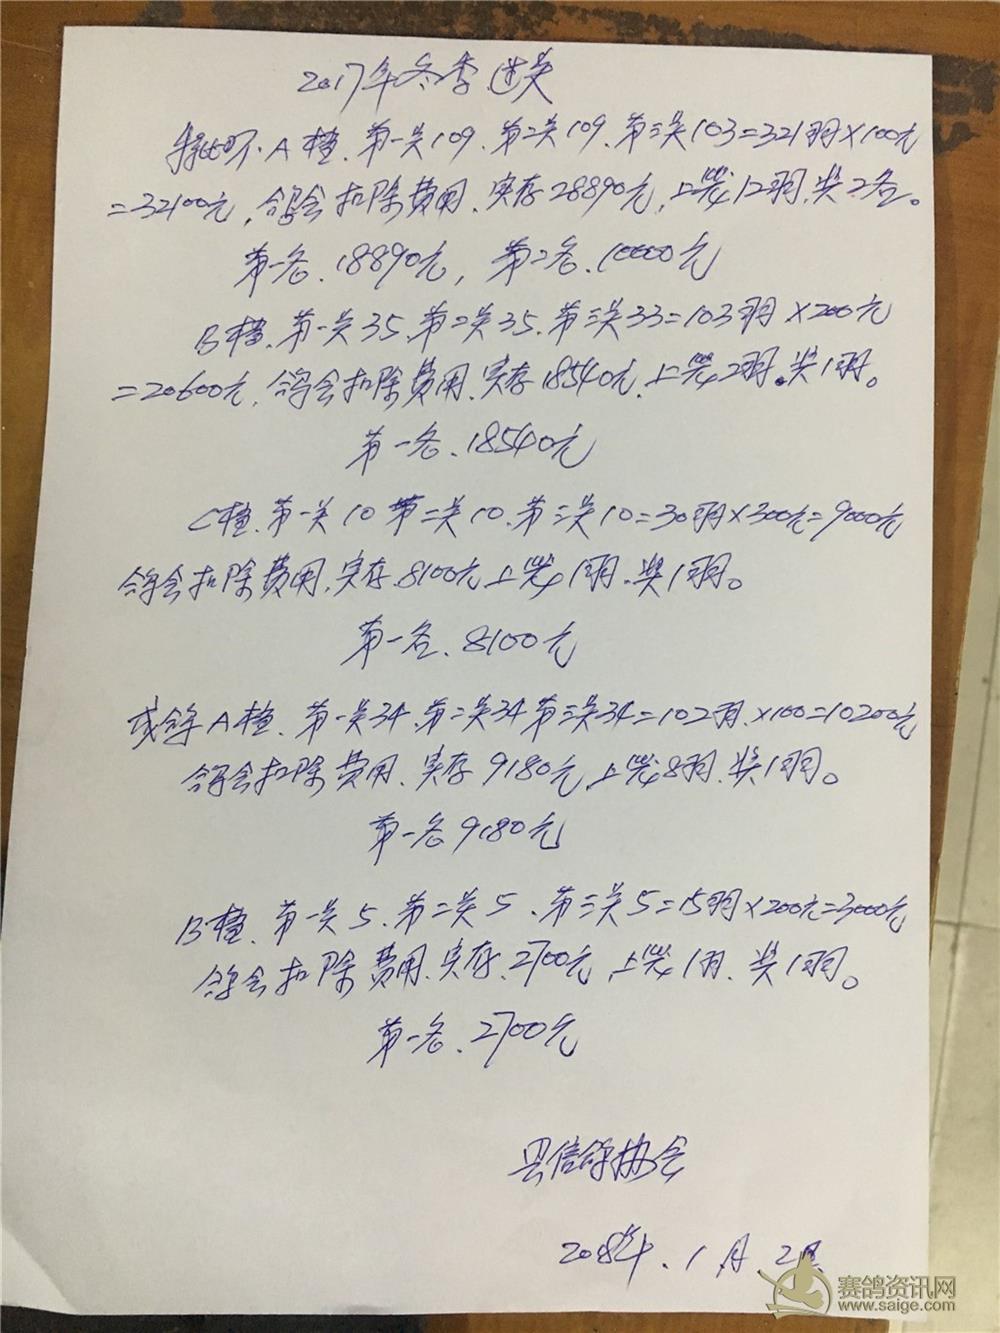 2017年冬季过关
特比环.A档.第一关109.第二关109.第三关103=321羽×100元
=32100元,鸽会扣除费用.实存28890元,上笼12羽.奖2名。
第一名.18890元,第二名.10000元
B档.第一关35.第二关35.第三关33=103羽×200元
=20600元.鸽会扣除费用.实存18540元.上笼2羽.奖1羽。
第一名.18540元
C档.第一关10第二关10.第三关10=30羽×300元=9000元
鸽会扣除费用.实存.8100元上笼1羽.奖1羽。
第一名.8100元
成鸽A档.第一关34.第二关34第三关34=102羽.×100=10200元
鸽会扣除费用.实存9180元上笼8羽.奖1羽。
第一名9180元
B档.第一关5.第二关5.第三关5=15羽×200元=3000元
鸽会扣除费用.实存.2700元,上笼1羽.奖1羽。
第一名.2700元
县信鸽协会
2018年.1月.2日
赛鸽资讯网
www.saige.com